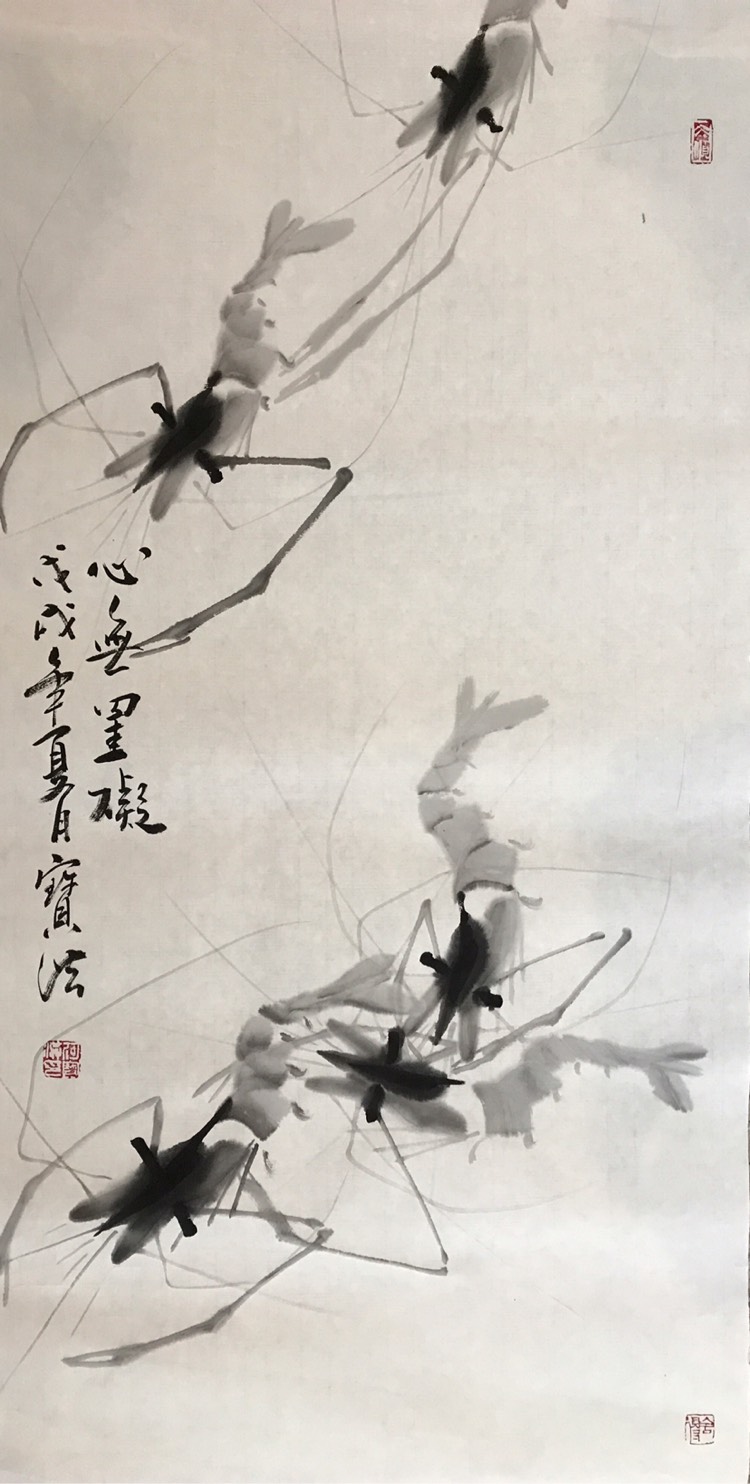 心無罣礙
戊戌年夏月寶法